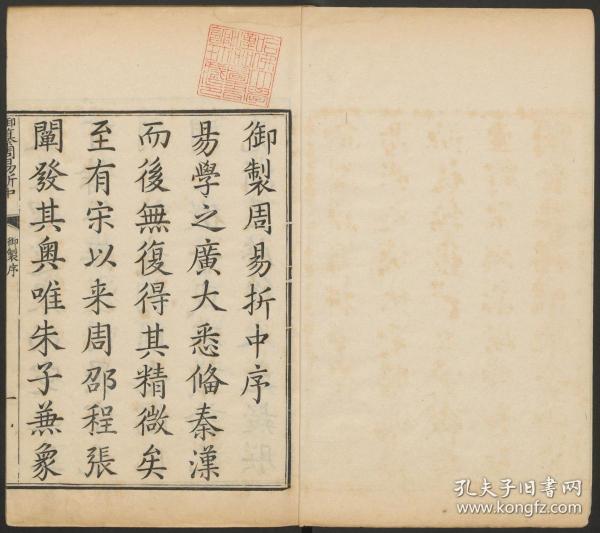 御製周易折中序
易學之廣大悉俻秦漢
而後無復得其精微矣
至有宋以来周邵程張
闡發其奧唯朱子兼象
御纂周易折中
御製序
一
孔夫子旧书网
www.kongfz.com